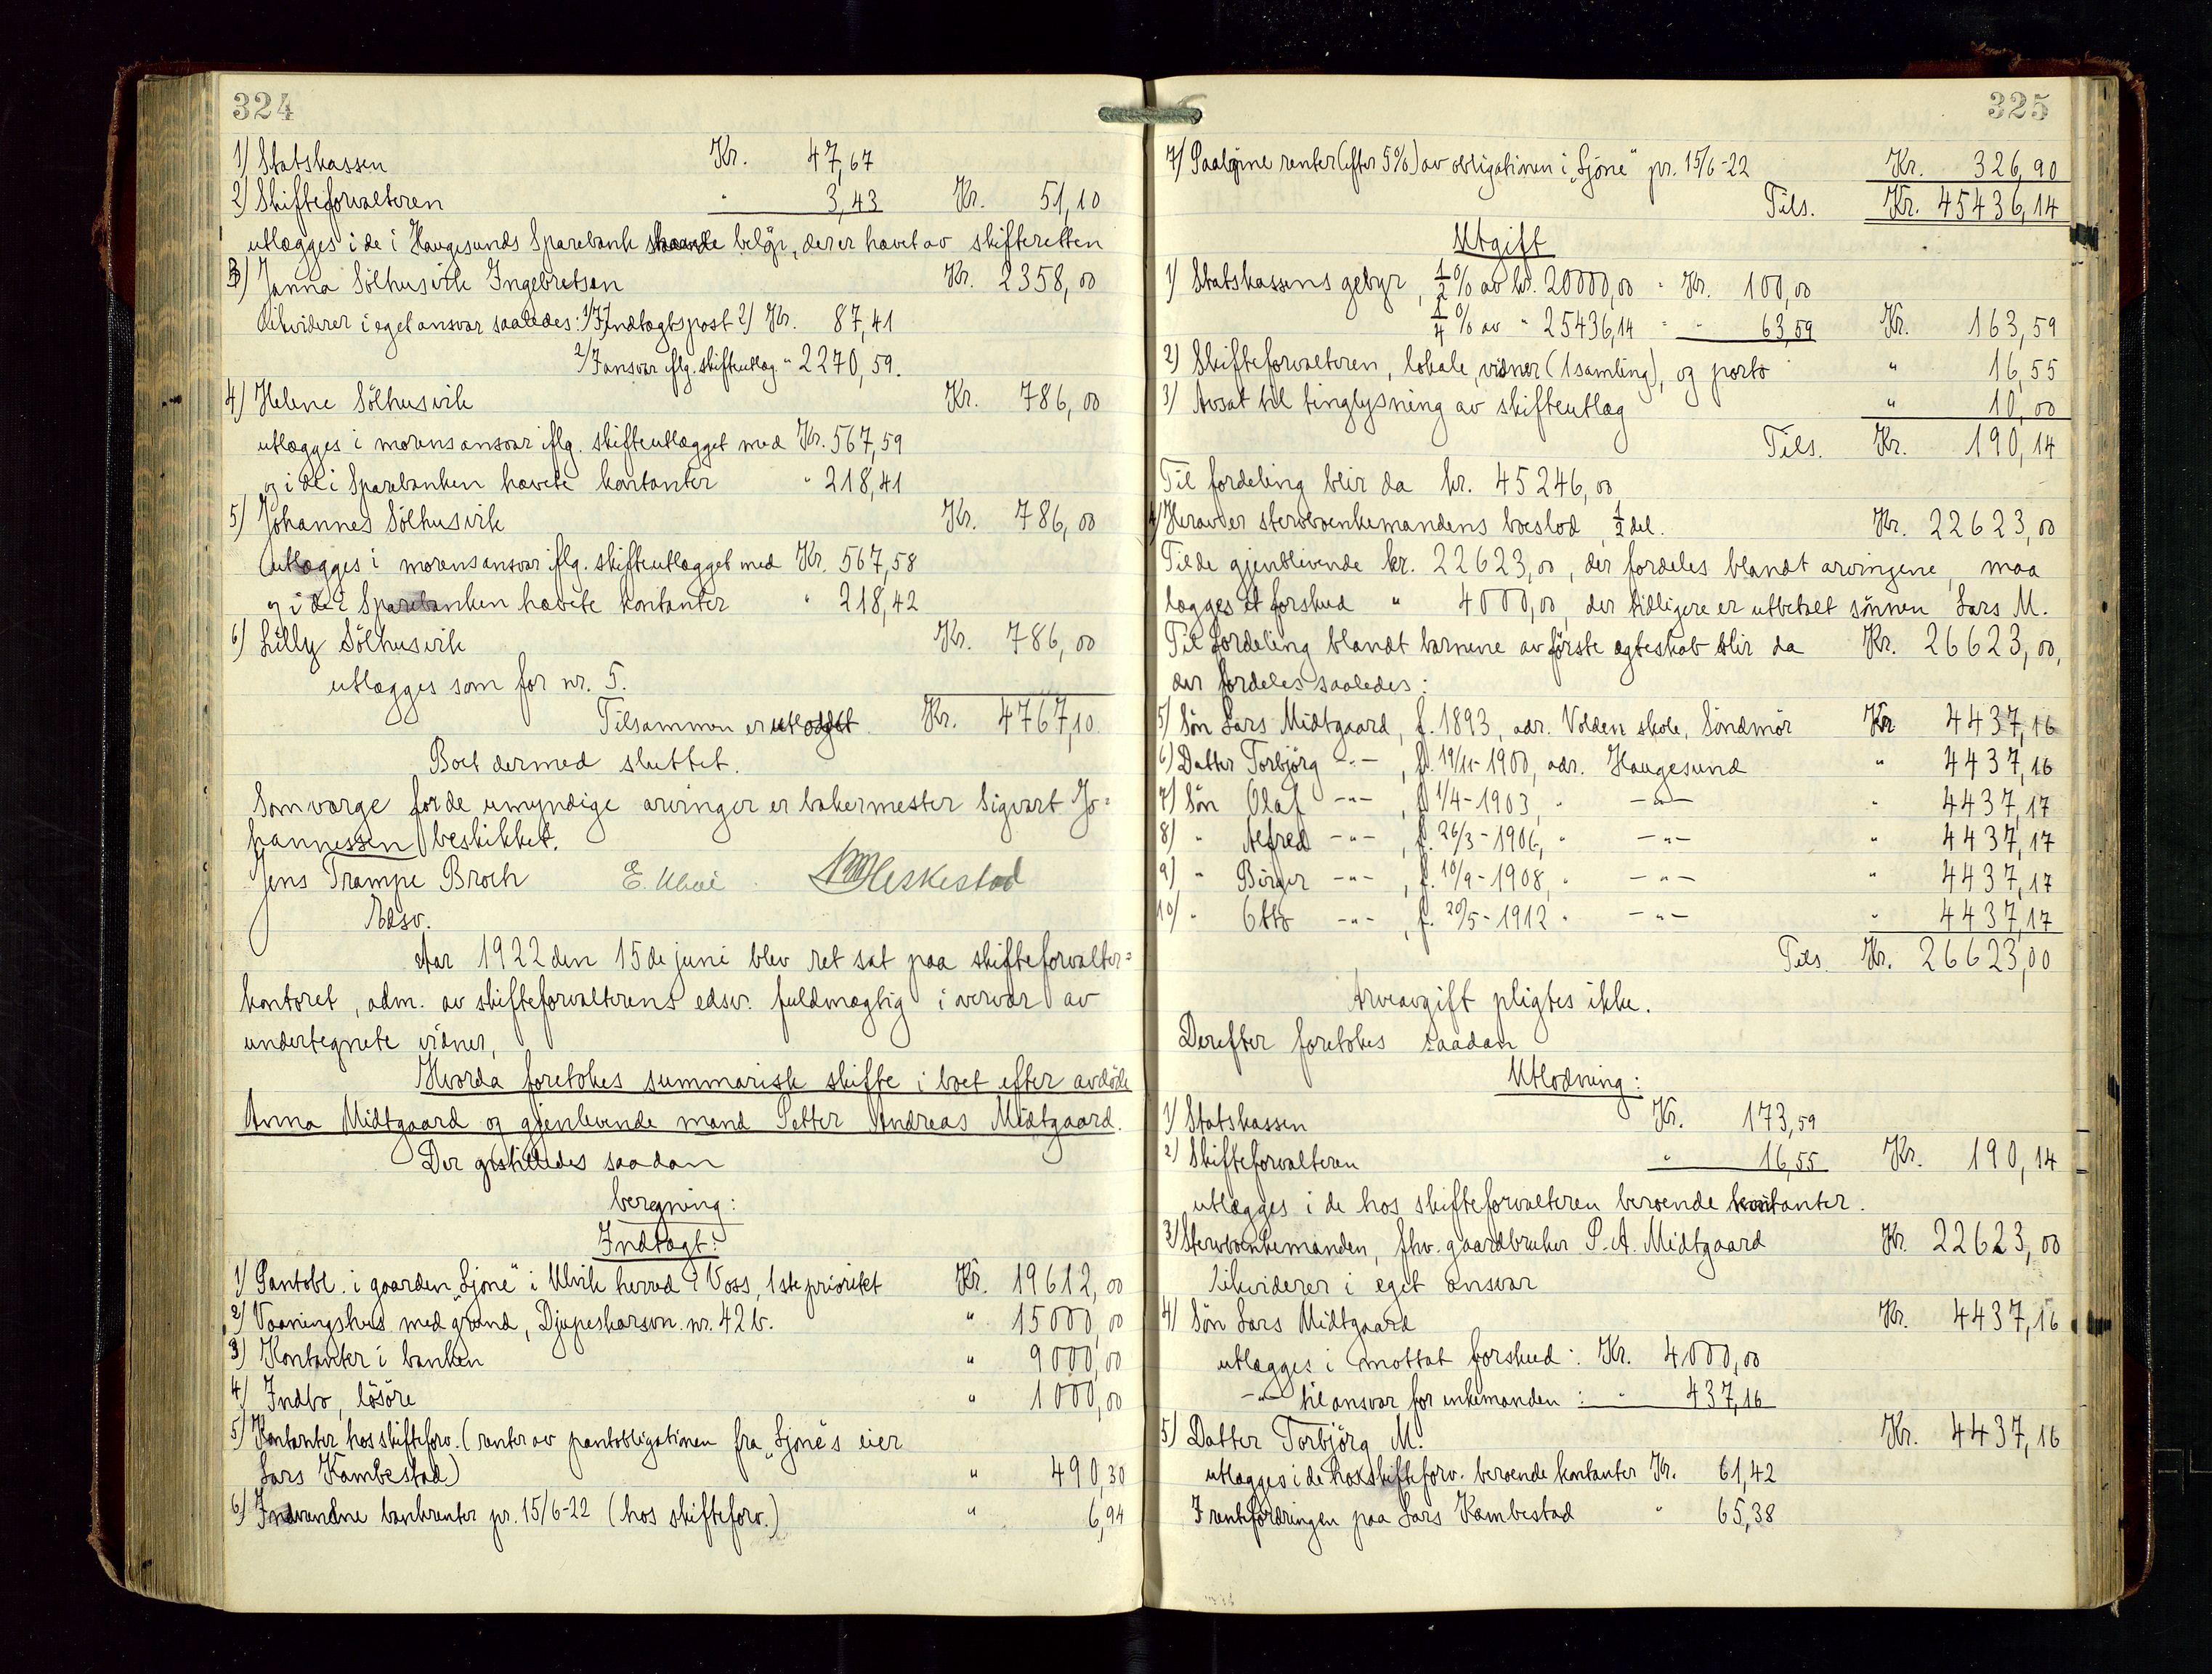 324
1) Statskassen Kr. 47,67
2) Skifteforvalteren " 3,43 Kr. 51,10
utlægges i de i Haugesunds Sparebank beløp, der er hævet av skifteretten
3) Janna Sölhusvik Ingebretsen Kr. 2358,00
likviderer i eget ansvar saaledes: 1/ Indtægtspost 2) Kr. 87,41
2/ I ansvar iflg. skifteutlæg " 2270,59.
4) Helene Sölhusvik Kr. 786,00
utlægges i morens ansvar iflg. skifteutlægget med Kr. 567,59
og i de i Sparebanken hævete kontanter " 218,41
5) Johannes Sölhusvik Kr. 786,00
utlægges i morens ansvar iflg. skifteutlægget med Kr. 567,58
og i de i Sparebanken hævete kontanter " 218,42
6) Lilly Sölhusvik Kr. 786,00
utlægges som for nr. 5.
Tilsammen er utlagt Kr. 4767,10
Boet dermed sluttet.
Som værge for de umyndige arvinger er bakermester Sigvart Jo=
hannessen beskikket.
Jens Trampe Broch E. Hheskestad
Edsv.
Aar 1922 den 15de juni blev ret sat paa skifteforvalter=
kontoret, adm. av skifteforvalterens edsv. fuldmægtig i overvær av
undertegnete vidner,
Hvorda foretokes summarisk skifte i boet efter avdøde
Anna Midtgaard og gjenlevende mand Petter Andreas Midtgaard.
Der opstilledes saadan
beregning:
Indtægt:
1) Pantobl. i gaarden "Ljone" i Ulvik herred i Voss, 1ste prioritet Kr. 19612,00
2) Vaaningshus med grund, Djupeskarsvn. nr. 42b. " 15000,00
3) Kontanter i banken " 9000,00
4) Indbo, lösöre " 1000,00
5) Kontanter hos skifteforv. (renter av pantobligationen fra "Ljone"s eier
Lars Kambestad) " 490,30
6) Indvundne bankrenter pr. 15/6-22 (hos skifteforv.) " 6,94
325
7) Paaløpne renter (efter 5%) av obligationen i "Ljone" pr. 15/6-22 Kr. 326,90
Tils. Kr. 45436,14
Utgift
1) Statskassens gebyr, ½% av kr. 20000,00 = Kr. 100,00
¼% av " 25436,14 = " 63,59 Kr. 163,59
2) Skifteforvalteren, lokale, vidner (1 samling), og porto " 16,55
3) Avsat til tinglysning av skifteutlæg " 10,00
Tils. Kr. 190,14
Til fordeling blir da kr. 45246,00
4) Herav er stervboenkemandens boeslod, ½ del. Kr. 22623,00
Til de gjenblivende kr. 22623,00, der fordeles blandt arvingene, maa
lægges et forskud " 4000,00, der tidligere er utbetalt sønnen Lars M.
Til fordeling blandt barnene av første ægteskab blir da Kr. 26623,00,
der fordeles saaledes:
5) Søn Lars Midtgaard, f. 1893, adr. Volden skole, Söndmör Kr. 4437,16
6) Datter Torbjörg -"- , f. 19/11-1900, adr. Haugesund " 4437,16
7) Søn Olaf -"- , f. 1/4-1903, " -"- " 4437,17
8) " Alfred -"- , f. 26/3-1906, " -"- " 4437,17
9) " Börger -"- , f. 10/9-1908, " -"- " 4437,17
10) " Otto -"- , f. 20/5-1912 " -"- " 4437,17
Tils. Kr. 26623,00
Arveavgift pligtes ikke.
Derefter foretokes saadan
Utlodning:
1) Statskassen Kr. 173,59
2) Skifteforvalteren " 16,55 Kr. 190,14
utlægges i de hos skifteforvalteren beroende kontanter.
3) Stervboenkemanden, fhv. gaardbruker P. A. Midtgaard Kr. 22623,00
likviderer i eget ansvar
4) Søn Lars Midtgaard Kr. 4437,16
utlægges i mottat forskud: Kr. 4000,00
-"- til ansvar for enkemanden: " 437,16
5) Datter Torbjörg M. Kr. 4437,16
utlægges i de hos skifteforv. beroende kontanter Kr. 61,42
I rentefordringen paa Lars Kambestad " 65,38